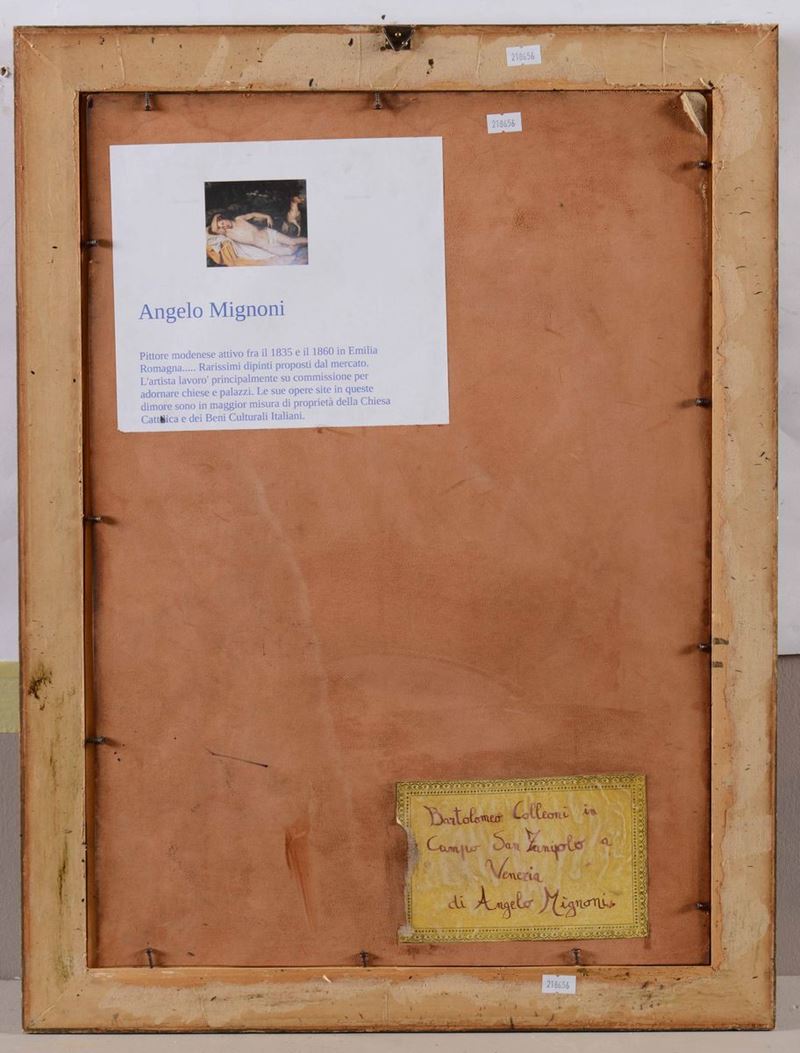 218656
218656
Angelo Mignoni
Pittore modenese attivo fra il 1835 e il 1860 in Emilia
Romagna..... Rarissimi dipinti proposti dal mercato.
L'artista lavoro' principalmente su commissione per
adornare chiese e palazzi. Le sue opere site in queste
dimore sono in maggior misura di proprietà della Chiesa
Cattolica e dei Beni Culturali Italiani.
Bartolomeo Colleoni in
Campo San Zanpolo a
Venezia
di Angelo Mignoni.
218656